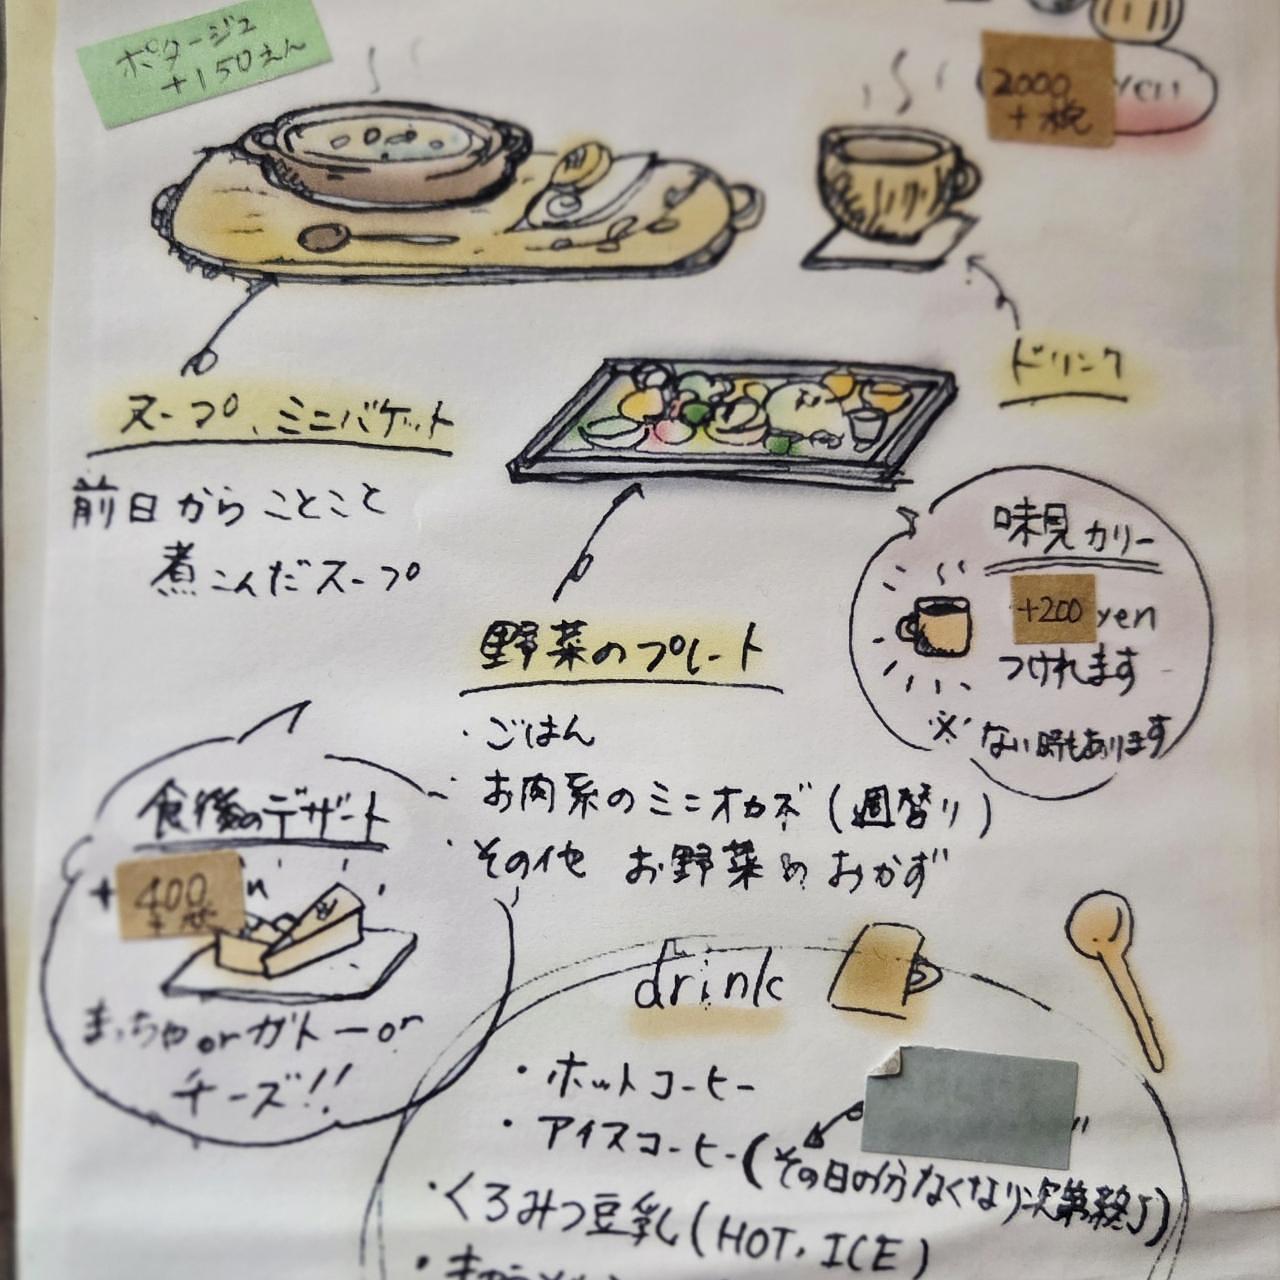 ポタージュ
+150えん
2000
+税
yen
ドリンク
スープ、ミニバケット
前日からことこと
煮こんだスープ
味見カリー
+200 yen
つけれます
※ない時もあります
野菜のプレート
・ごはん
・お肉系のミニオカズ(週替り)
・その他 お野菜のおかず
食後のデザート
+400
+税
まっちゃorガトーor
チーズ!!
drink
・ホットコーヒー
・アイスコーヒー(その日の分なくなり次第終了)
・くろみつ豆乳(HOT、ICE)